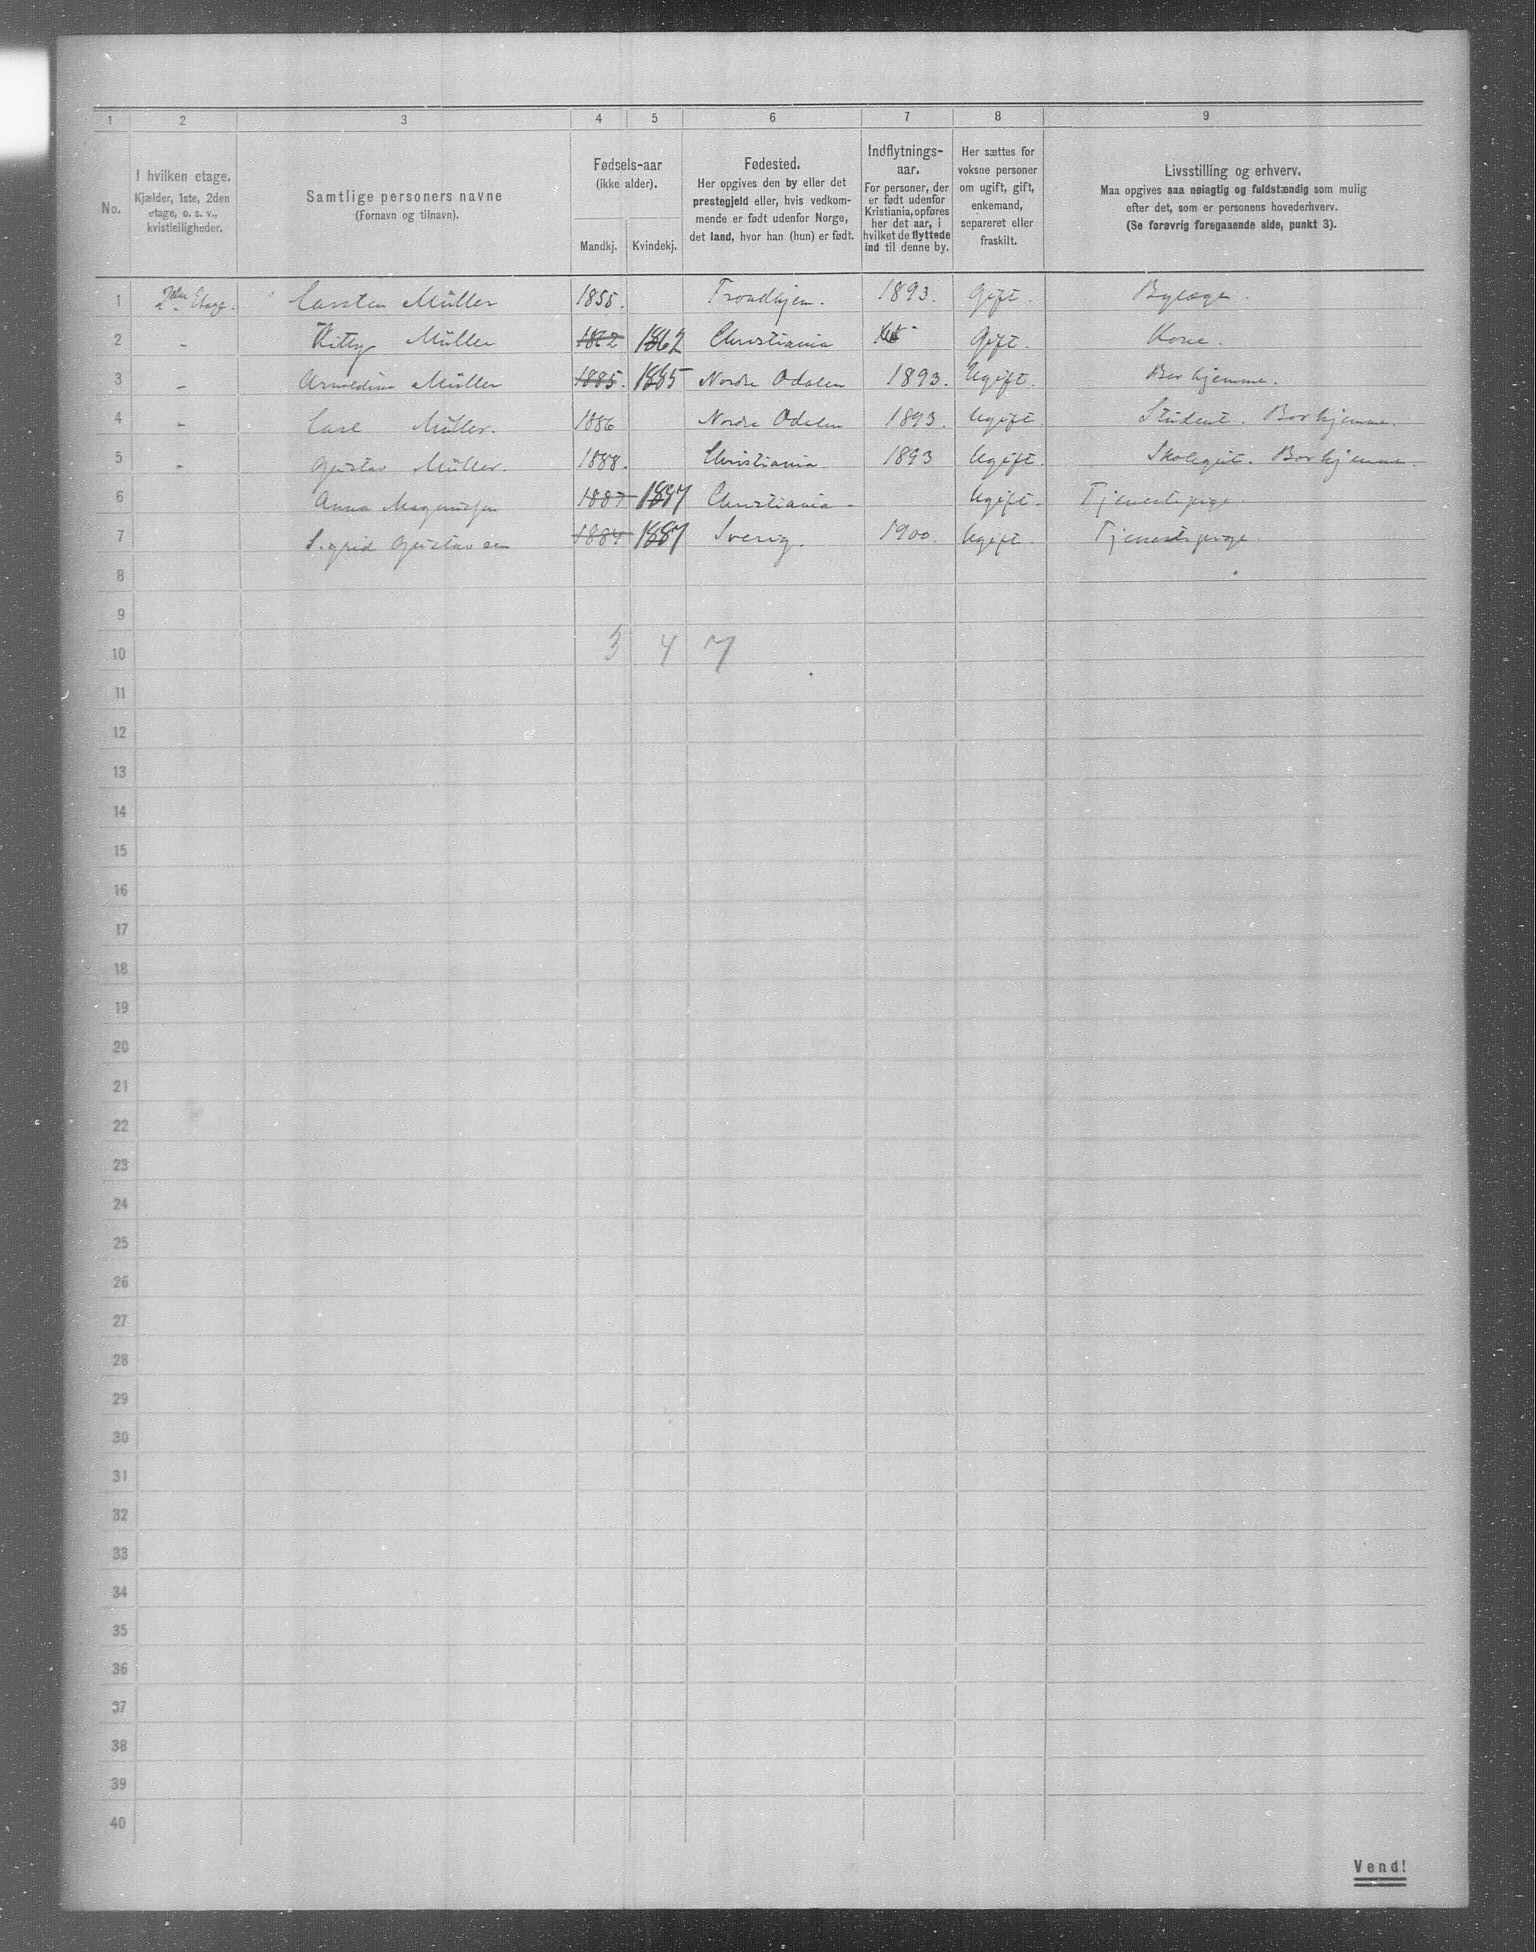 1 2 3 4 5 6 7 8 9
No.
I hvilken etage.
Kjælder, 1ste, 2den
etage, o. s. v.,
kvistleiligheder.
Samtlige personers navne
(Fornavn og tilnavn).
Fødsels-aar
(ikke alder).
Mandkj. Kvindekj.
Fødested.
Her opgives den by eller det
prestegjeld eller, hvis vedkom-
mende er født udenfor Norge,
det land, hvor han (hun) er født.
Indflytnings-
aar.
For personer, der
er født udenfor
Kristiania, opføres
her det aar, i
hvilket de flyttede
ind til denne by.
Her sættes for
voksne personer
om ugift, gift,
enkemand,
separeret eller
fraskilt.
Livsstilling og erhverv.
Maa opgives saa nøiagtig og fuldstændig som mulig
efter det, som er personens hovederhverv.
(Se forøvrig foregaaende side, punkt 3).
1 2den Etage. Carsten Müller 1855. Trondhjem. 1893. Gift. Bylæge.
2 - Kitty Müller 1862 1862 Christiania Gift. Kone.
3 - Müller 1885. 1885 Nordre Odalen 1893. Ugift. Bor hjemme.
4 - Carl Müller. 1886 Nordre Odalen 1893. Ugift. Student. Bor hjemme.
5 - Gustav Müller. 1888. Christiania. 1893 Ugift. Skolegut. Bor hjemme.
6 Anna Magnussen 1887 1887 Christiania - Ugift. Tjenestepige.
7 Sigrid Gustavsen 1887 1887 Sverig. 1900. Ugift. Tjenestepige.
8
9
10 3 4 7
11
12
13
14
15
16
17
18
19
20
21
22
23
24
25
26
27
28
29
30
31
32
33
34
35
36
37
38
39
40
Vend!